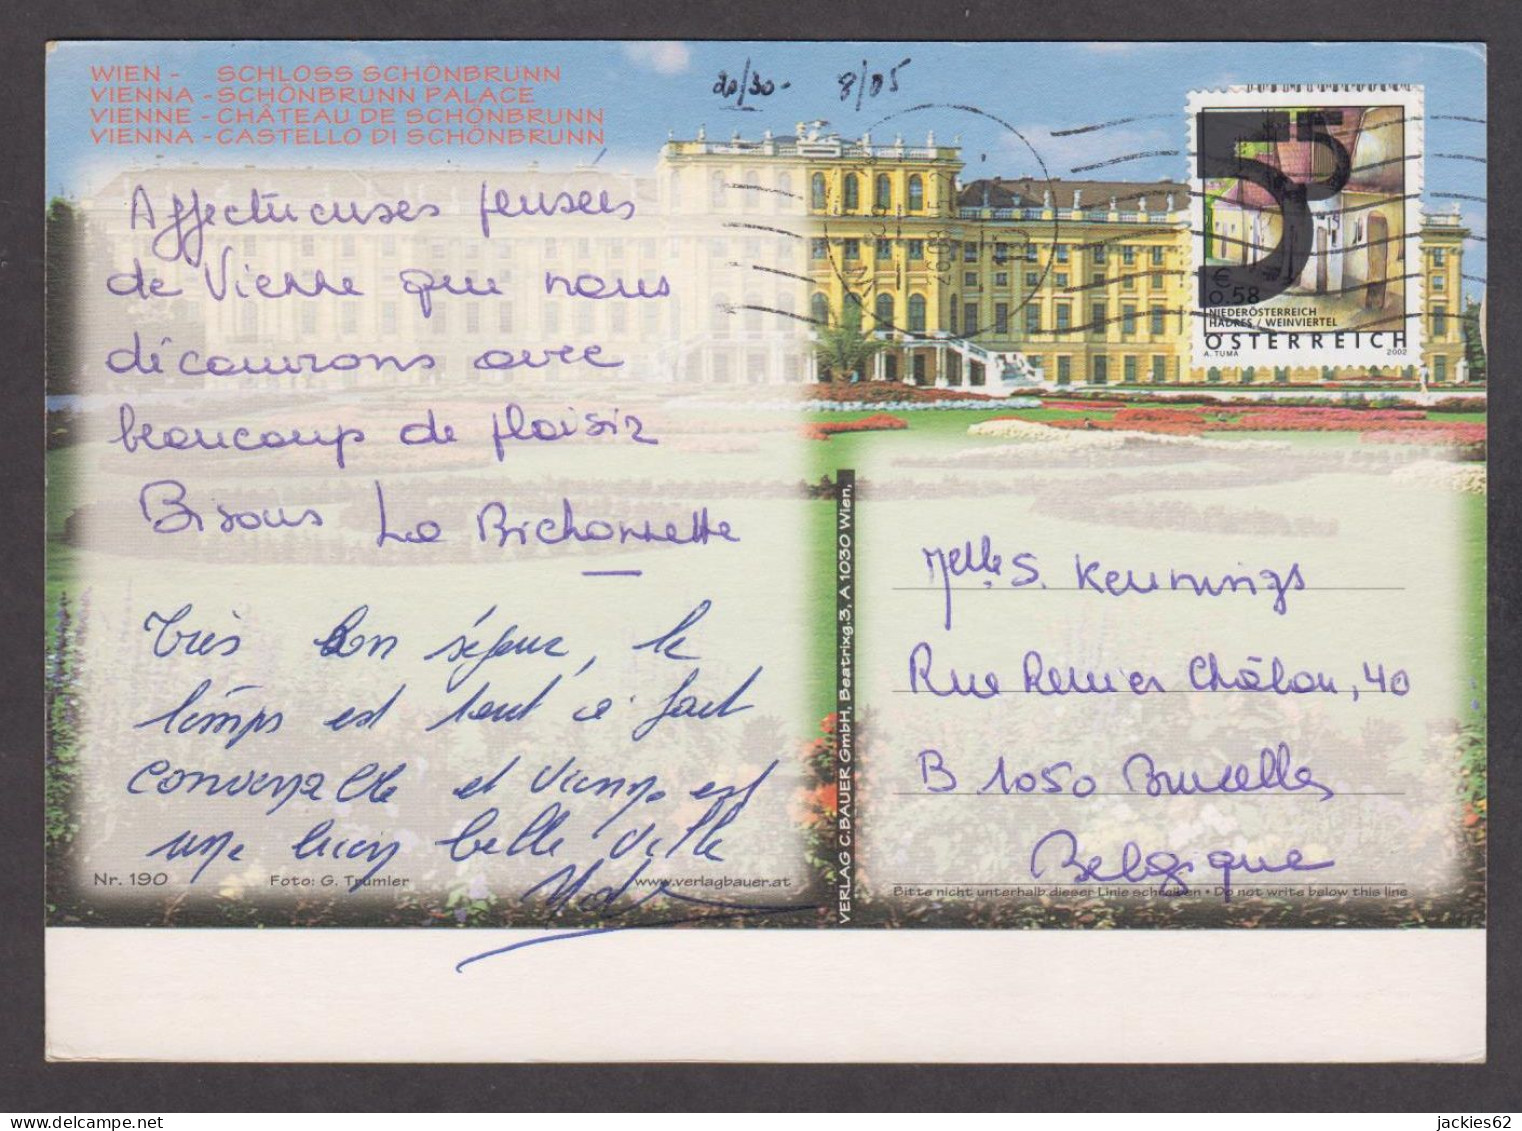 WIEN - SCHLOSS SCHÖNBRUNN
VIENNA - SCHÖNBRUNN PALACE
VIENNE - CHÂTEAU DE SCHÖNBRUNN
VIENNA - CASTELLO DI SCHÖNBRUNN
20/30 - 8/05
Affectueuses pensées
de Vienne que nous
découvrons avec
beaucoup de plaisir
Bisous La Bichonnette
Très bon séjour, le
temps est tout à fait
convenable et Vienne est
une bien belle ville
Nr. 190 Foto: G. Trumler www.verlagbauer.at
VERLAG C.BAUER GmbH, Beatrixg.3, A 1030 Wien.
55
€
0.58
NIEDERÖSTERREICH
HADRES / WEINVIERTEL
ÖSTERREICH
A. TUMA 2002
Melle S. Kennings
Rue Renier Châlon, 40
B 1050 Bruxelles
Belgique
Bitte nicht unterhalb dieser Linie schreiben • Do not write below this line
jackies62